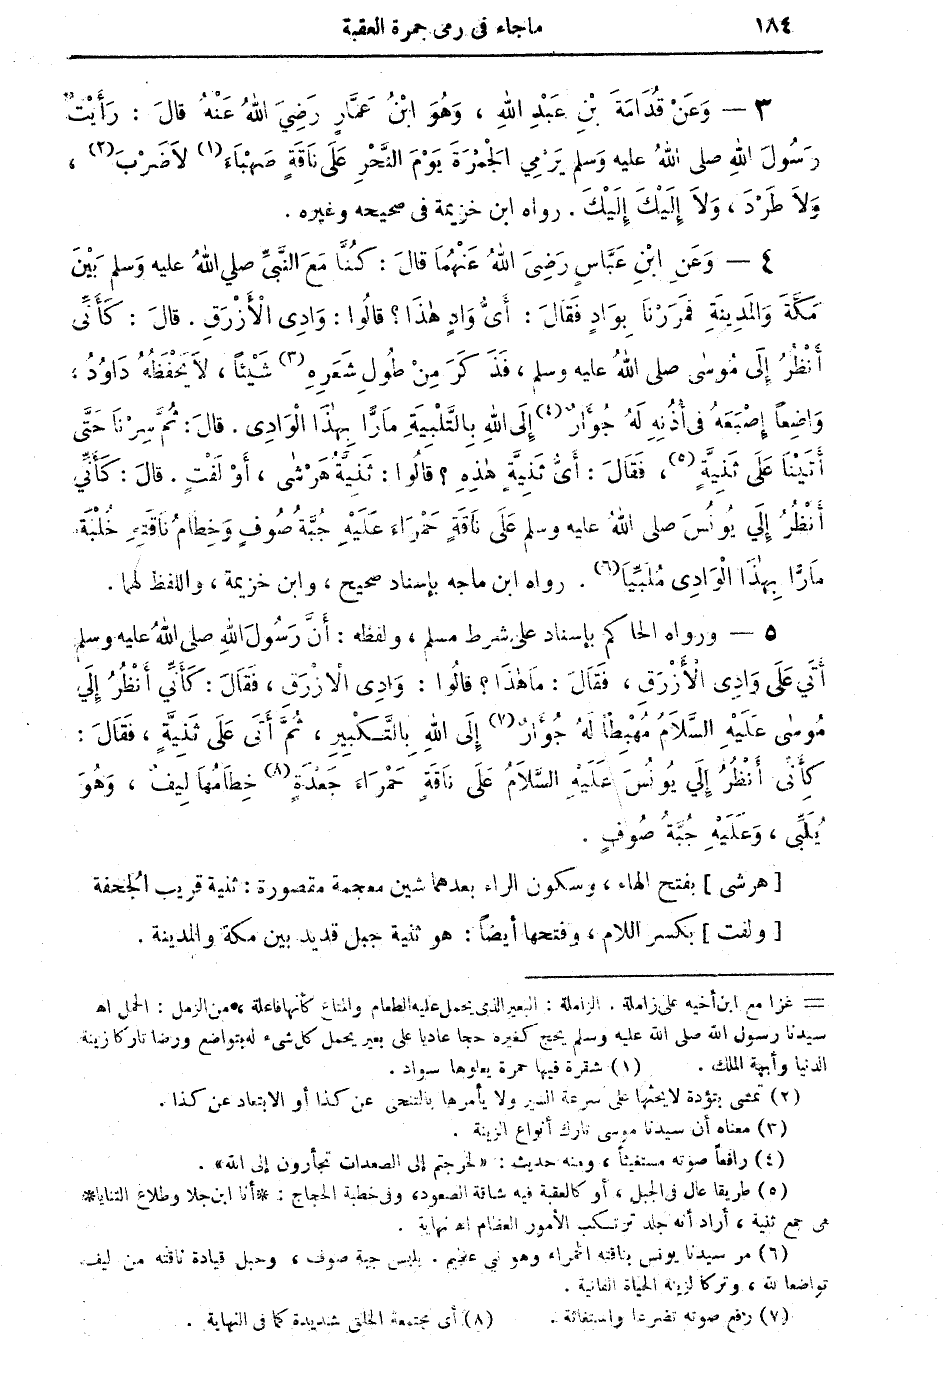 ١٨٤ ماجاء فى رمى جمرة العقبة
٣ — وَعَنْ قُدَامَةَ بْنِ عَبْدِ اللهِ ، وَهُوَ ابْنُ عَمَّارٍ رَضِيَ اللهُ عَنْهُ قالَ : رَأَيْتُ
رَسُولَ اللهِ صلى اللهُ عليه وَسلم يَرْمِي الْجَمْرَةَ يَوْمَ النَّحْرِ عَلَى نَاقَةٍ صَهْبَاءَ(١) لاَضَرْبَ(٢) ،
وَلاَ طَرْدَ ، وَلاَ إِلَيْكَ إِلَيْكَ . رواه ابن خزيمة فى صحيحه وغيره .
٤ — وَعَنِ ابْنِ عَبَّاسٍ رَضِىَ اللهُ عَنْهُمَا قالَ : كُنَّا مَعَ النَّبِيِّ صلى اللهُ عليه وسلم بَيْنَ
مَكَّةَ وَالْمَدِينَةِ فَمَرَرْنَا بِوَادٍ فَقَالَ : أَىُّ وَادٍ هٰذَا ؟ قالُوا : وَادِى الْأَزْرَقِ . قالَ : كَأَنِّى
أَنْظُرُ إِلَى مُوسٰى صلى اللهُ عليه وسلم ، فَذَ كَرَ مِنْ طُولِ شَعَرِهِ(٣) شَيْئاً ، لاَيَحْفَظُهُ دَاوُدُ ؛
وَاضِعاً إِصْبَعَهُ فِى أُذُنِهِ لَهُ جُؤَارٌ(٤) إِلَى اللهِ بِالتَّلْبِيَةِ مَارًّا بِهٰذَا الْوَادِى . قالَ : ثُمَّ سِرْنَا حَتَّى
أَتَيْنَا عَلَى ثَنِيَّةٍ(٥) ، فَقَالَ : أَىُّ ثَنِيَّةٍ هٰذِهِ ؟ قالُوا : ثَنِيَّةُ هَرْشٰى ، أَوْ لَفْتٍ . قالَ : كَأَنِّي
أَنْظُرُ إِلَي يُونُسَ صلى اللهُ عليه وسلم عَلَى نَاقَةٍ حَمْرَاءَ عَلَيْهِ جُبَّةُ صُوفٍ وَخِطَامُ نَاقَتِهِ خُلْبَةٌ
مَارًّا بِهٰذَا الْوَادِى مُلَبِّيًا(٦) . رواه ابن ماجه بإسناد صحيح ، وابن خزيمة ، واللفظ لهما .
٥ — ورواه الحاكم بإسناد على شرط مسلم ، ولفظه : أَنَّ رَسُولَ اللهِ صلى اللهُ عليه وسلم
أَتَي عَلَى وَادِى الْأَزْرَقِ ، فَقَالَ : مَاهٰذَا ؟ قالُوا : وَادِى الْأَزْرَقِ ، فَقَالَ : كَأَنِّي أَنْظُرُ إِلَي
مُوسٰى عَلَيْهِ السَّلاَمُ مُهْبِطًا لَهُ جُؤَارٌ(٧) إِلَى اللهِ بِالتَّكْبِيرِ ، ثُمَّ أَتَى عَلَى ثَنِيَّةٍ ، فَقَالَ :
كَأَنِّى أَنْظُرُ إِلَي يُونُسَ عَلَيْهِ السَّلاَمُ عَلَى نَاقَةٍ حَمْرَاءَ جَعْدَةٍ(٨) خِطَامُهَا لِيفٌ ، وَهُوَ
يُلَبِّى ، وَعَلَيْهِ جُبَّةُ صُوفٍ .
[ هرشى ] بفتح الهاء ، وسكون الراء بعدهما شين معجمة مقصورة : ثنية قريب الجحفة
[ ولفت ] بكسر اللام ، وفتحها أيضاً : هو ثنية جبل قديد بين مكة والمدينة .
= غزا مع ابن أخيه على زاملة . الزاملة : البعير الذى يحمل عليه الطعام والمتاع كأنها فاعلة ، من الزمل : الحمل اه
سيدنا رسول الله صلى الله عليه وسلم يحج كغيره حجا عاديا على بعير يحمل كل شىء له بتواضع ورضا تاركا زينة
الدنيا وأبهة الملك . (١) شقرة فيها حمرة يعلوها سواد .
(٢) تمشى بتؤدة لايحثها على سرعة السير ولا يأمرها بالتنحى عن كذا أو الابتعاد عن كذا .
(٣) معناه أن سيدنا موسى تارك أنواع الزينة .
(٤) رافعاً صوته مستغيثاً ، ومنه حديث : «لخرجتم إلى الصعدات تجأرون إلى الله» .
(٥) طريقا عال فى الجبل ، أو كالعقبة فيه شاقة الصعود، وفى خطبة الحجاج : *أنا ابن جلا وطلاع الثنايا*
هى جمع ثنية ، أراد أنه جلد يرتكب الأمور العظام اه نهاية .
(٦) مر سيدنا يونس بناقته الحمراء وهو نبي عظيم . يلبس جبة صوف ، وحبل قيادة ناقته من ليف
تواضعا لله ، وتركا لزينة الحياة الفانية .
(٧) رفع صوته تضرعا واستغاثة . (٨) أى مجتمعة الخلق شديدة كما فى النهاية .